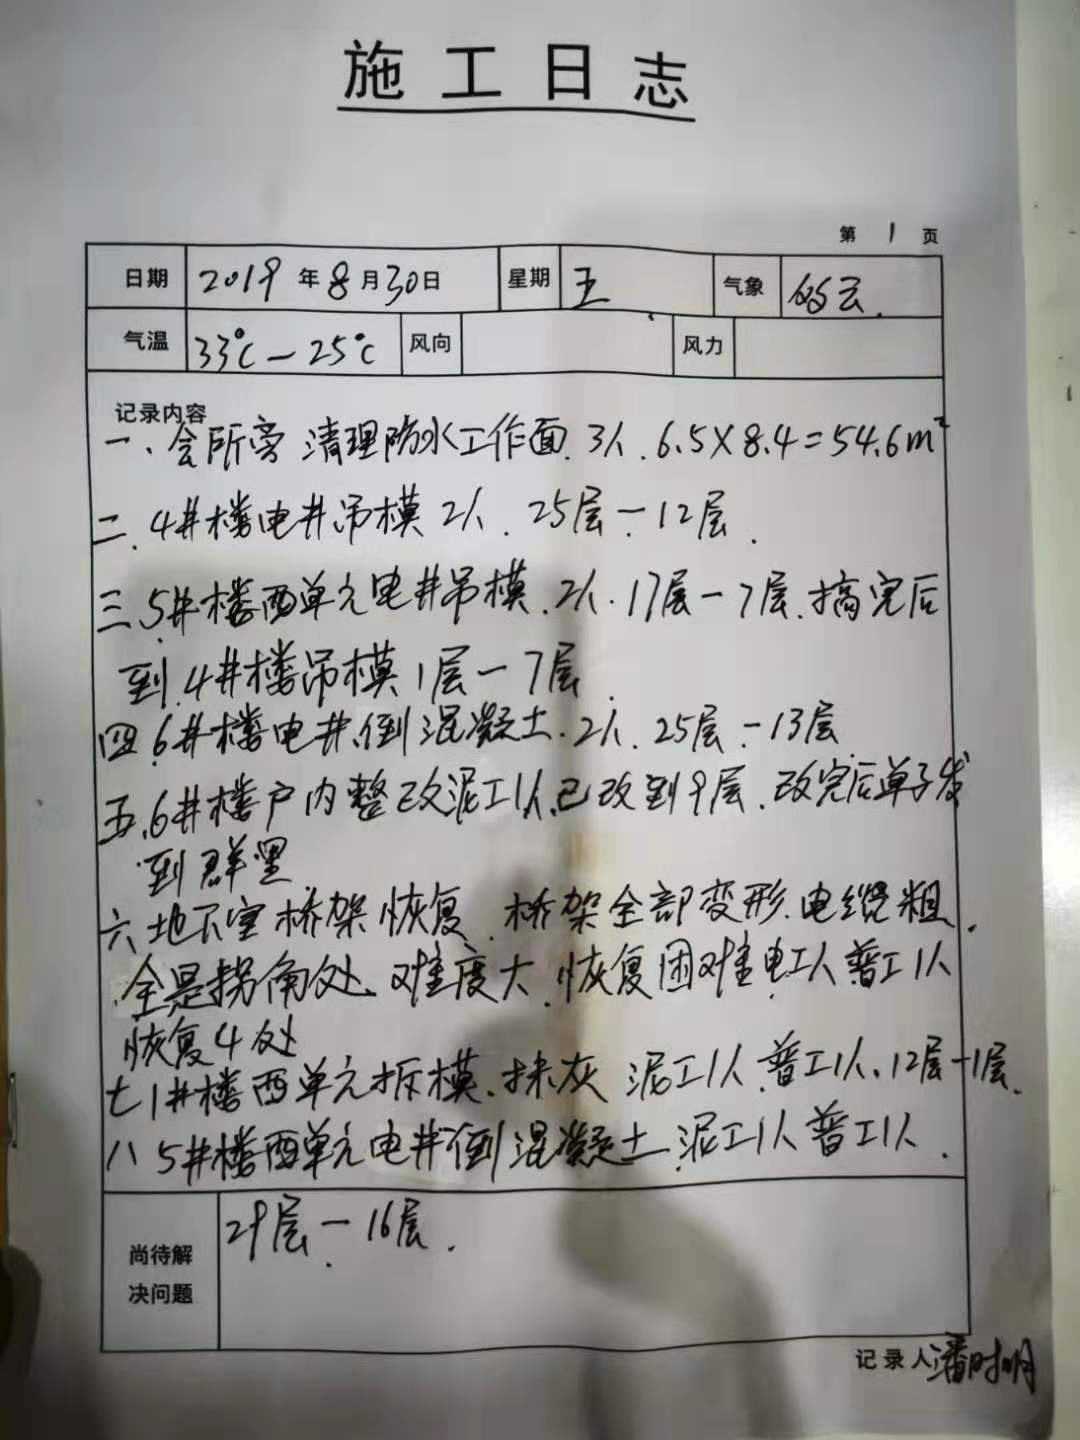 施工日志
第 1 页
日期 2019 年 8 月 30 日 星期 五 气象 多云.
气温 33℃－25℃ 风向 风力
记录内容
一、会所旁 清理防水工作面. 3人. 6.5×8.4=54.6m²
二. 4#楼电井吊模 2人. 25层－12层.
三.5#楼西单元电井吊模.2人.17层－7层.搞完后
到.4#楼吊模 1层－7层.
四.6#楼电井.倒混凝土.2人.25层－13层
五.6#楼户内整改泥工1人.已改到9层.改完后单子发
到群里
六 地下室桥架恢复. 桥架全部变形.电缆粗.
全是拐角处.难度大.恢复困难电工1人普工1人
恢复4处
七1#楼西单元拆模.抹灰 泥工1人.普工1人.12层－1层.
八 5#楼西单元电井倒混凝土.泥工1人普工1人.
尚待解决问题 29层－16层.
记录人 潘时明